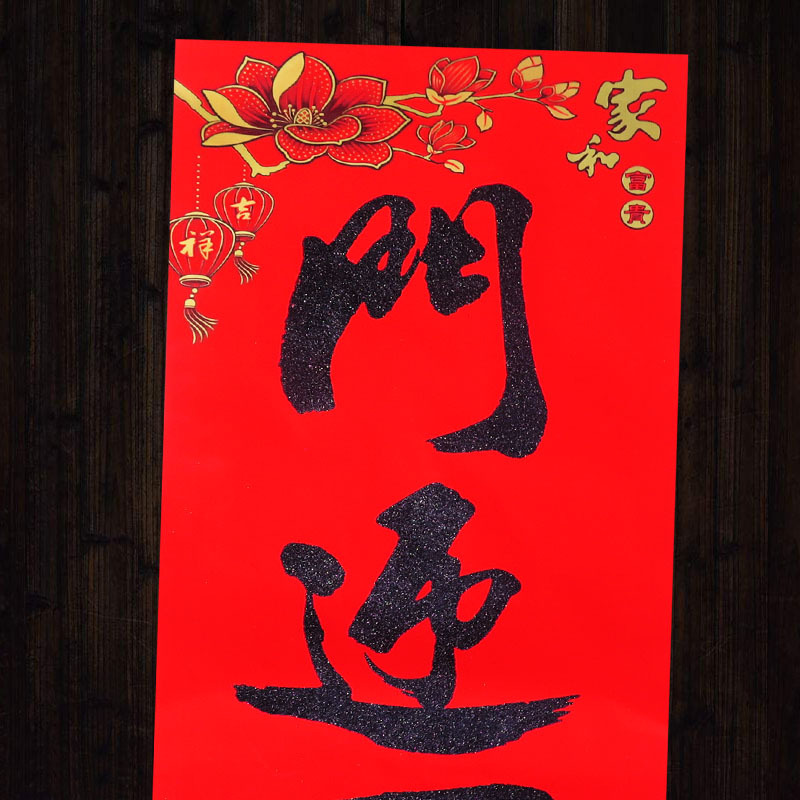 家和
富貴
吉祥
門迎